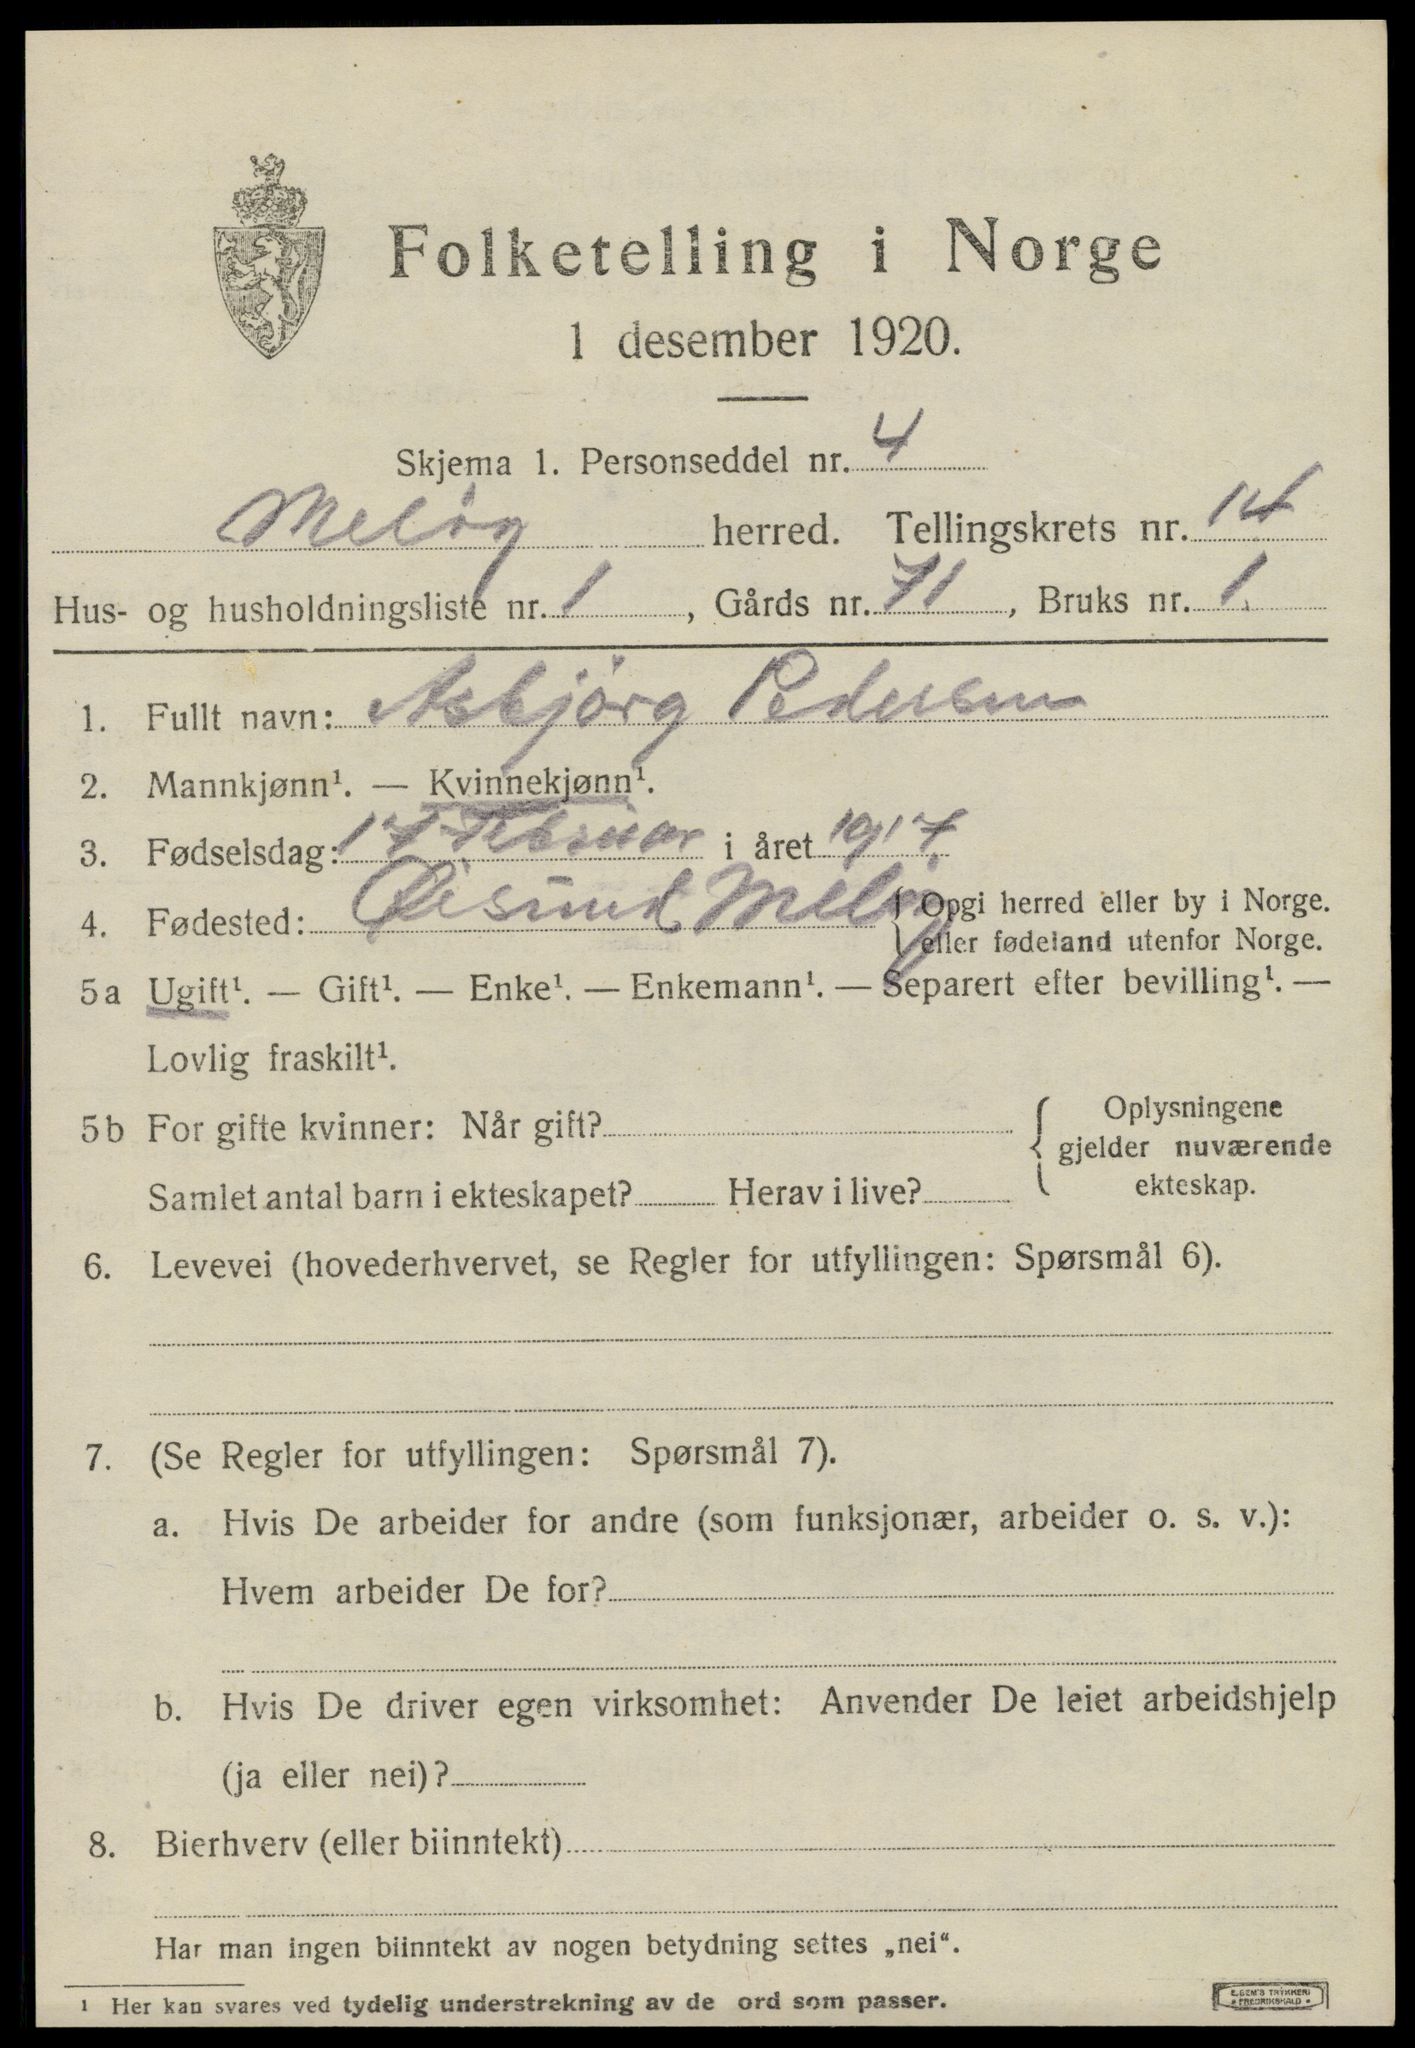 Folketelling i Norge
1 desember 1920.
Skjema 1. Personseddel nr. 4
Meløy herred. Tellingskrets nr. 14
Hus- og husholdningsliste nr. 1, Gårds nr. 71, Bruks nr. 1.
1. Fullt navn: Asbjörg Pedersen
2. Mannkjønn¹. — Kvinnekjønn¹.
3. Fødselsdag: 17 Februar i året 1917
4. Fødested: Øisund Meløy { Opgi herred eller by i Norge.
eller fødeland utenfor Norge.
5a Ugift¹. — Gift¹. — Enke¹. — Enkemann¹. — Separert efter bevilling¹. —
Lovlig fraskilt¹.
5b For gifte kvinner: Når gift? { Oplysningene
gjelder nuværende
Samlet antal barn i ekteskapet? Herav i live? ekteskap.
6. Levevei (hovederhvervet, se Regler for utfyllingen: Spørsmål 6).
7. (Se Regler for utfyllingen: Spørsmål 7).
a. Hvis De arbeider for andre (som funksjonær, arbeider o. s. v.):
Hvem arbeider De for?
b. Hvis De driver egen virksomhet: Anvender De leiet arbeidshjelp
(ja eller nei)?
8. Bierhverv (eller biinntekt)
Har man ingen biinntekt av nogen betydning settes „nei“.
¹ Her kan svares ved tydelig understrekning av de ord som passer.
E. SEM'S TRYKKERI
• FREDRIKSHALD •